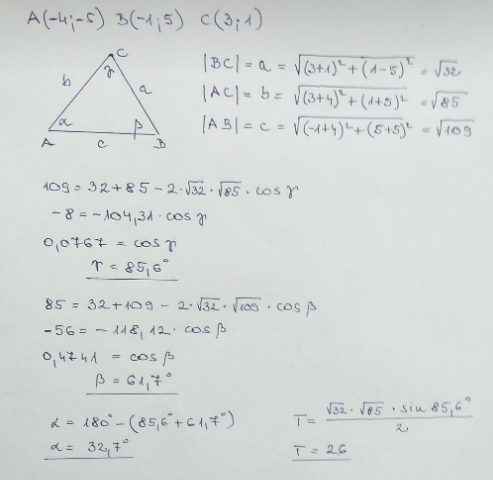 A(-4;-5) B(-1;5) C(3;1)
C
γ
b
a
α
β
A
c
B
|BC| = a = √((3+1)² + (1-5)²) = √32
|AC| = b = √((3+4)² + (1+5)²) = √85
|AB| = c = √((-1+4)² + (5+5)²) = √109
109 = 32 + 85 - 2·√32·√85·cos γ
-8 = -104,31·cos γ
0,0767 = cos γ
γ = 85,6°
85 = 32 + 109 - 2·√32·√109·cos β
-56 = -118,12·cos β
0,4741 = cos β
β = 61,7°
α = 180° - (85,6° + 61,7°)
α = 32,7°
T = √32·√85·sin 85,6° / 2
T = 26